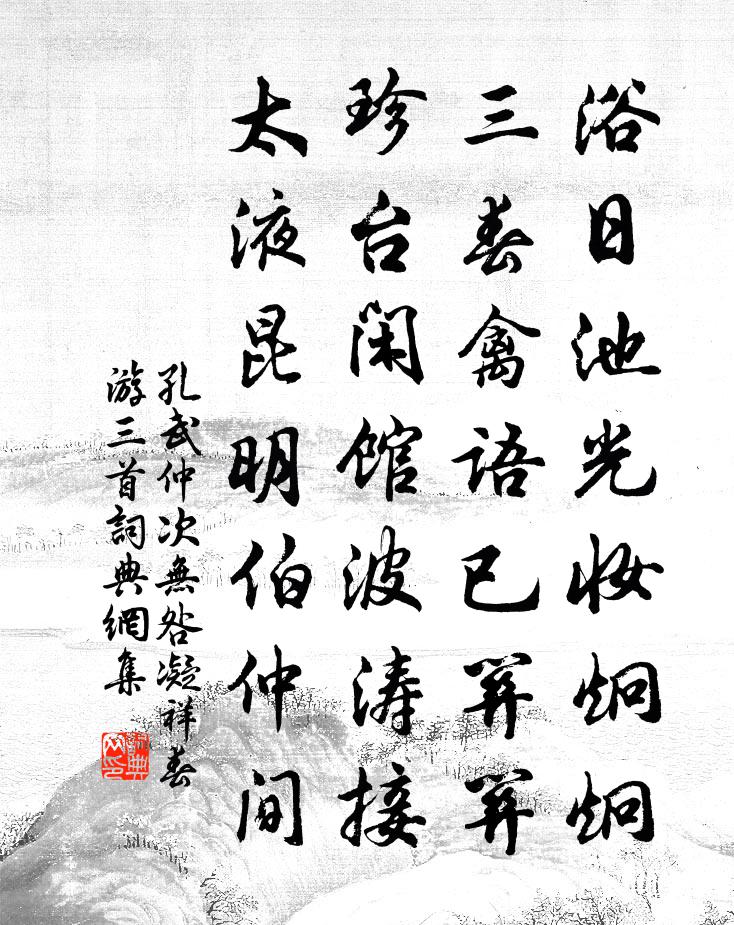 浴日池光妆炯炯
三春禽语已关关
珍台闲馆波涛接
太液昆明伯仲间
孔武仲次無咎凝祥春
游三首詞典網集
詞典
网印